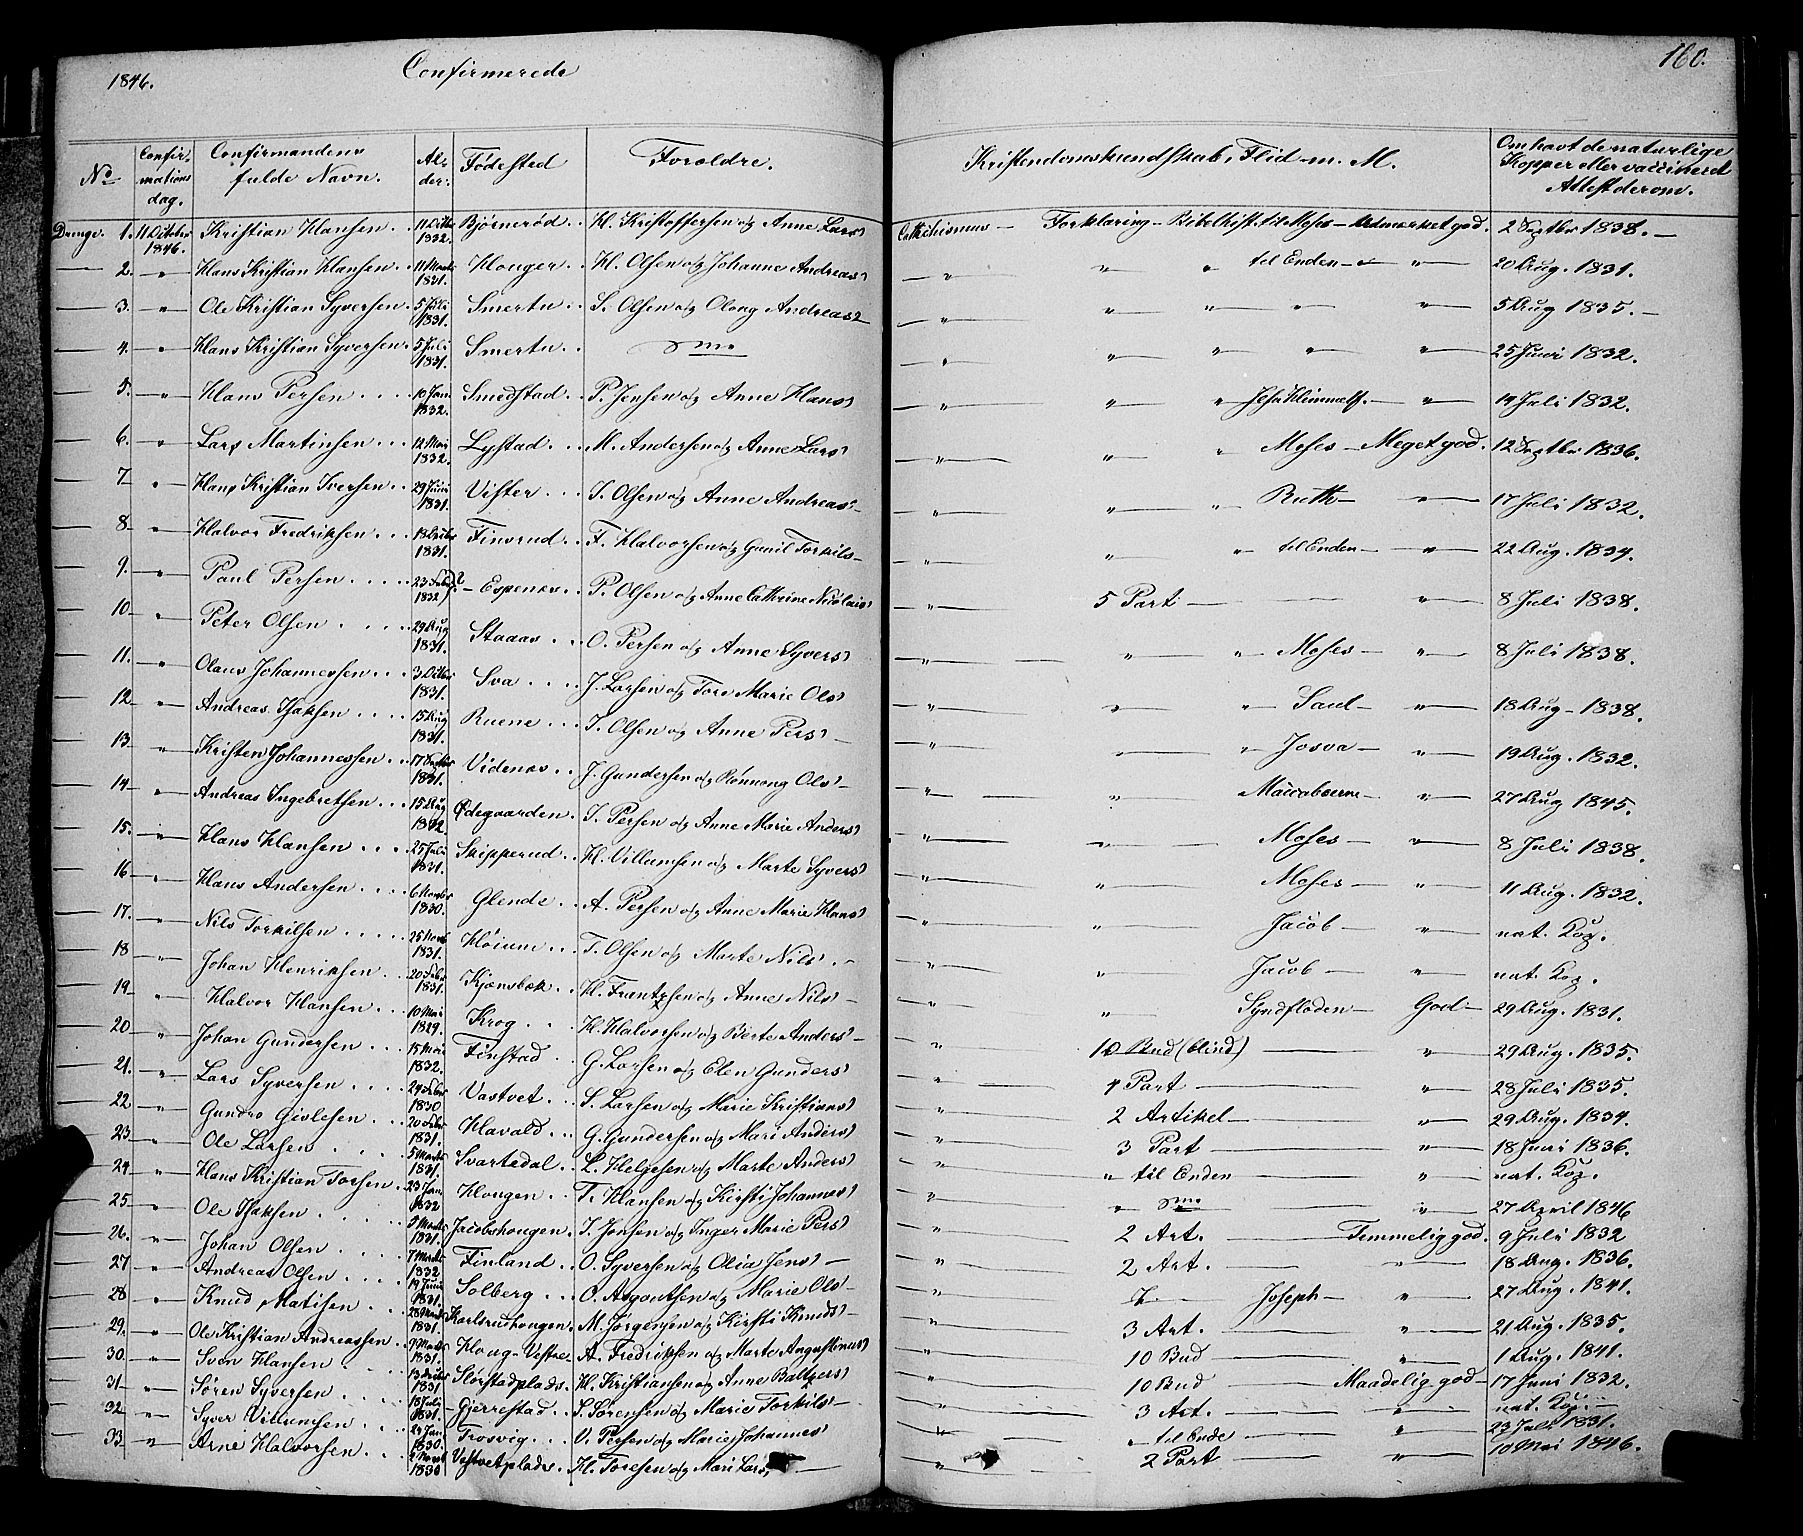 1846. Confirmerede 160.
No Confirmations dag. Confirmandens fulde Navn. Alder. Fødested Foræld­re. Kristendomskundskab, Flid m. M. Om havt de naturlige Kopper eller vaccineret Attest derom.
Drenge. 1. 11 Octobr 1846. Kristian Hansen. 11 Octbr 1832. Bjørnerød. H. Kristoffersen og Anne Lars Cathechismus — Forklaring — Bibelhist. til Moses — Udmærket god. 2 Septbr 1838. —
— 2. " Hans Kristian Hansen. 11 1831. Hougen. H. Olsen og Johanne Andreas " " " til Enden — " 20 Aug. 1831.
— 3. " Ole Kristian Syversen. 5 Juli 1831. Smertu S. Olsen og Olong Andreas " " " " " 5 Aug 1835. —
— 4. " Hans Kristian Syversen. 5 Juli 1831. Smertu " " " " " 25 Juni 1832.
— 5. " Hans Persen 10 Jan. 1832. Smedstad P. Jensen og Anne Hans " " " Jesu Himmelf. — " 19 Juli 1832.
— 6. " Lars Martinsen 12 1832. Lystad M. Andersen og Anne Lars " " " Moses — Meget god. 12 Septbr 1836.
— 7 " Hans Kristian Iversen 29 Juni 1831. Vister I. Olsen og Anne Andreas — " " " Ruth — " 17 Juli 1832.
— 8 — " Halvor Fredriksen 18 1831. Finsrud F. Halvorsen og Gunil Torkils — " " " til Enden — " 22 Aug. 1834.
— 9. " Paul Persen 23 1832 ? — Espenæs P. Olsen og Anne Cathrine Nicolais " 5 Part — " 8 Juli 1838.
— 10 — " Peter Olsen 29 Aug 1831. Staaas O. Persen og Anne Syvers " " " Moses — " 8 Juli 1838.
— 11. " Olaus Johannessen 3 Octbr 1831. Sva J. Larsen og Tore Marie Ols " " " Saul — " 18 Aug — 1838.
— 12 — " Andreas Isaksen 15 Aug 1831. Ruene I. Olsen og Anne Pers — " " " Josva — " 19 Aug. 1832.
— 13 — " Kristen Johannessen 17 1831. Videnæs J. Gundersen og Rønnong Ols — " " Maccabæerne — " 27 Aug 1845.
— 14 — " Andreas Ingebretsen 15 Aug 1832 Ødegaarden. I. Persen og Anne Marie Anders " " Moses — " 8 Juli 1838.
— 15. " Hans Hansen 25 Juli 1831. Skipperud H. Villumsen og Marte Syvers " " Moses — " 11 Aug. 1832.
— 16 " Hans Andersen 6 1830. Glende A. Persen og Anne Marie Hans " " Jacob — " nat. Kop.
— 17. " Nils Torkilsen 25 1831. Høium T. Olsen og Marte Nils — " " Jacob — " nat. Kop.
— 18 " Johan Henriksen 20 Febr 1831. Kjønsbæk H. Frantzsen og Anne Nils — " " Syndfloden God — 29 Aug. 1831.
— 19 — " Halvor Hansen 10 Mai 1829. Krog H. Halvorsen og Berte Anders — " 10 Bud (blind) " 29 Aug. 1835.
— 20 " Johan Gundersen 15 1832. Finstad G. Larsen og Elen Gunders " 4 Part " 28 Juli 1835.
— 21. " Lars Syversen 24 Febr 1830 Vastvet S. Larsen og Marie Kristians " 2 Artikel — " 29 Aug. 1834.
— 22 " Gundro Gislesen 20 Febr 1831. Havald G. Gundersen og Mari Anders " 3 Part " 18 Juni 1836.
— 23 " Ole Larsen 5 1831. Svartedal L. Helgesen og Marte Anders " " til Enden " nat. Kop.
— 24 " Hans Kristian Torsen 23 Jan. 1832 Hougen T. Hansen og Kirsti Johannes " " " 27 April 1846
— 25 — " Ole Isaksen 1831. Jacobshougen I. Jonsen og Inger Marie Pers " 2 Art. Temmelig god. 9 Juli 1832
— 26. " Johan Olsen 7 1832 Finland O. Syversen og Olia Jens — " 2 Art. " 18 Aug. 1836.
— 27 " Andreas Olsen 19 Juni 1831. Solberg O. Asgautsen og Marie Ols — " Joseph — " 27 Aug. 1841.
— 28 " Knud Matisen 28 1831. Karlsrudhougen. M. Jørgensen og Kirsti Knuds " 3 Art. " 21 Aug. 1835.
— 29. " Ole Kristian Andreassen 9 1831. Houg — Vestre A. Fredriksen og Marte Augustinus " 10 Bud " 1 Aug. 1841.
— 30. " Sven Hansen 13 1831 Slorstadplads. H. Kristiansen og Anne Baltzers " 10 Bud Maadelig god — 17 Juni 1832.
— 31 " Søren Syversen 18 Juli 1831. Gjerrestad. S. Sørensen og Marie Torkils — " 3 Art. " nat. Kop. —
— 32 " Syver Villumsen 24 Jan. 1830. Trosvig V. Persen og Marie Johannes " " til Ende " 23 Juli 1831.
— 33 " Arne Halvorsen 2 1830 Vestvetplads. H. Toresen og Mari Lars — " 2 Part " 10 Mai 1846.